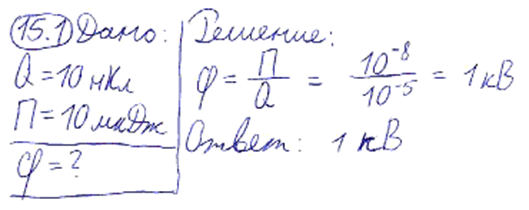 15.1 Дано:
Q = 10 нКл
П = 10 мкДж
φ = ?
Решение:
φ = П/Q = 10⁻⁸/10⁻⁵ = 1 кВ
Ответ: 1 кВ